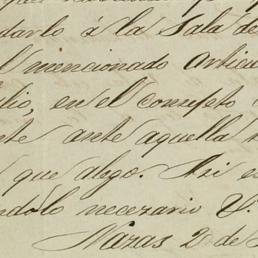 darlo á la Sala de
l mencionado Articu
lio, en el concepto
te ante aquella
que alego. Asi
ndolo necezario
Nazas 2 de